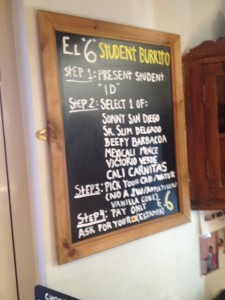 EL "6" STUDENT BURRITO
STEP 1: PRESENT STUDENT
"ID"
STEP 2: SELECT 1 OF:
SONNY SAN DIEGO
SR. SLIM DELGADO
BEEFY BARBACOA
MEXCALI MINCE
VICTORIO VERDE
CALI CARNITAS
STEP3: PICK YOUR CAN/WATER
VANILLA COKE)
STEP4: PAY ONLY 6
ASK FOR YOUR (ESTAMPA)